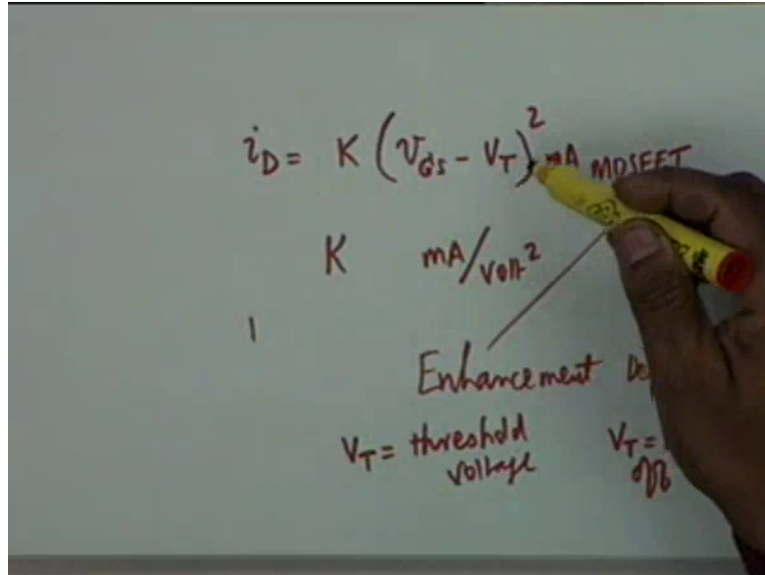 i_D = K (V_GS - V_T)^2 mA MOSFET
K mA/volt^2
Enhancement
V_T = threshold V_T =
voltage